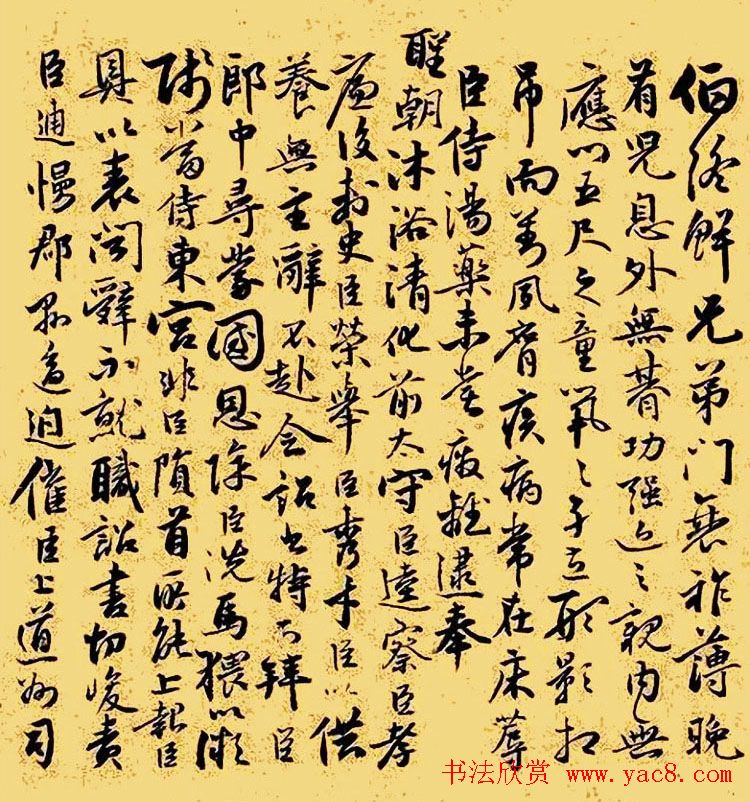 伯終鮮兄弟門衰祚薄晚
有兒息外無朞功强近之親内無
應門五尺之童煢〻孑立形影相
吊而劉夙嬰疾病常在床蓐
臣侍湯藥未嘗廢離逮奉
聖朝沐浴清化前太守臣逵察臣孝
廉後刺史臣榮舉臣秀才臣以供
養無主辭不赴命詔書特下拜臣
郎中尋蒙國恩除臣洗馬猥以微
賤當侍東宮非臣隕首所能上報臣
具以表聞辭不就職詔書切峻責
臣逋慢郡縣逼迫催臣上道州司
书法欣赏 www.yac8.com